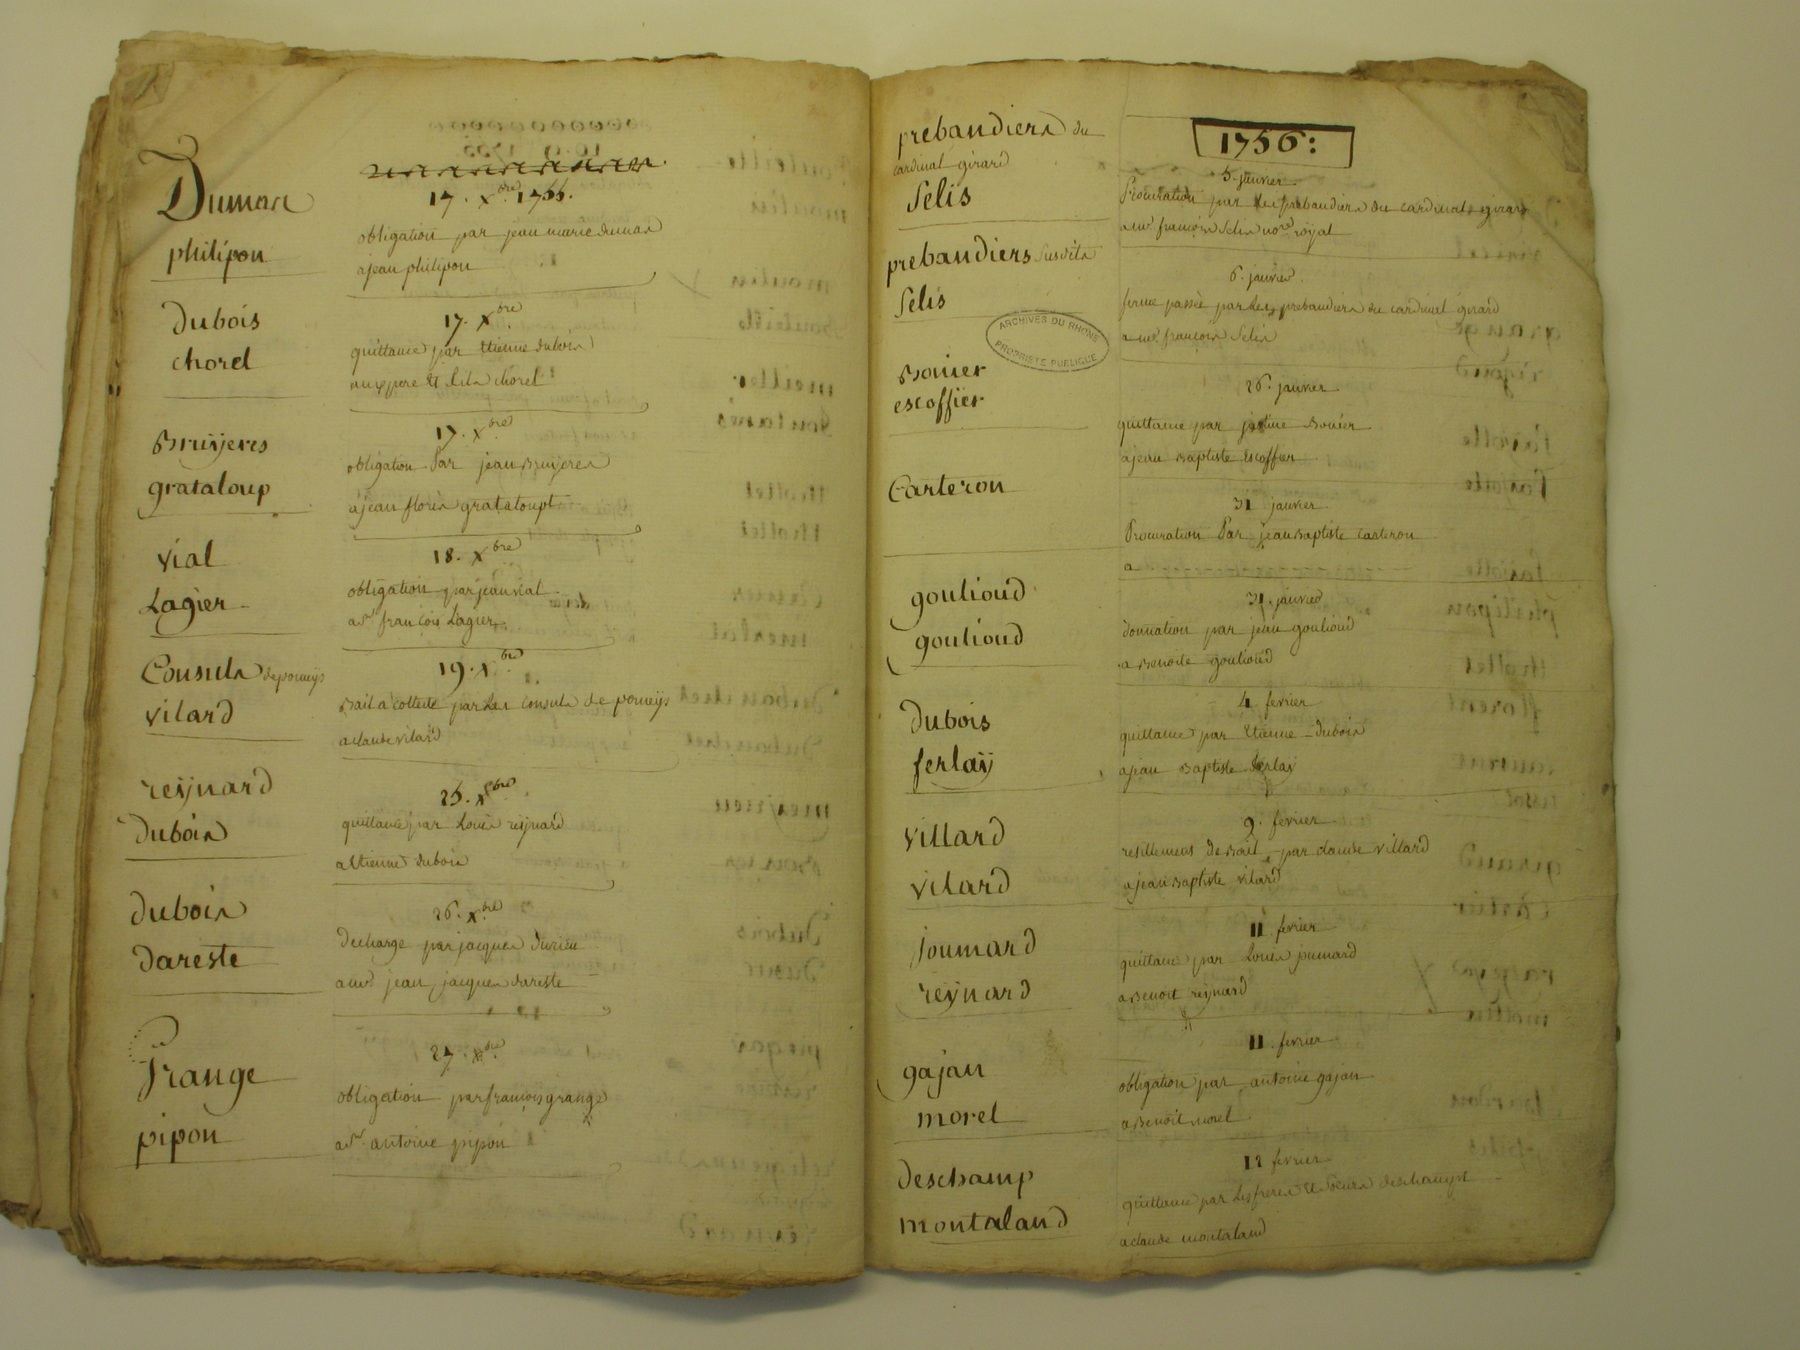 Dumas
philipon
17. Xbre 1755.
obligation par jean marie dumas
a jean philipon
Dubois
chorel
17. Xbre
quittance par Etienne dubois
aux pere Et fils chorel
Bruÿeres
grataloup
17. Xbre
obligation Par jean Bruÿeres
a jean floris grataloupt
vial
Lagier
18. Xbre
obligation par jean vial
a sr françois Lagier
Consuls de pomeÿs
vilard
19. Xbre
Bail a collecte par Les Consuls de pomeÿs
a claude vilard
reÿnard
Dubois
25. Xbre
quittance par Louis reÿnard
a Etienne dubois
dubois
dareste
26. Xbre
decharge par jacques
a mr jean jacques dareste
Grange
pipon
27. Xbre
obligation par françois grange
a sr antoine pipon
prebandiers du
cardinal girard
Selis
1756:
5. janvier
Procuration par Les prebandiers du cardinal girard
a mr françois Selis nore roÿal
prebandiers susdits
Selis
6. janvier
ferme passée par Les prebandiers du cardinal girard
a mr françois Selis
ARCHIVES DU RHONE
PROPRIÉTÉ PUBLIQUE
Bonier
escoffier
26. janvier
quittance par Bonier
a jean Baptiste Escoffier
Carteron
31 janvier
Procuration Par jean Baptiste Carteron
a
goulioud
goulioud
31. janvier
donnation par jean goulioud
a Benoite goulioud
dubois
ferlaÿ
4 fevrier
quittance par Etienne dubois
a jean Baptiste ferlaÿ
villard
vilard
9. fevrier
resillement de Bail par claude villard
a jean Baptiste vilard
joumard
reÿnard
11 fevrier
quittance par Louis jumard
a Benoit reÿnard
gajan
morel
11. fevrier
obligation par antoine gajan
a Benoit morel
deschamp
montaland
12 fevrier
quittance par Les freres Et Soeurs deschampt
a claude montaland